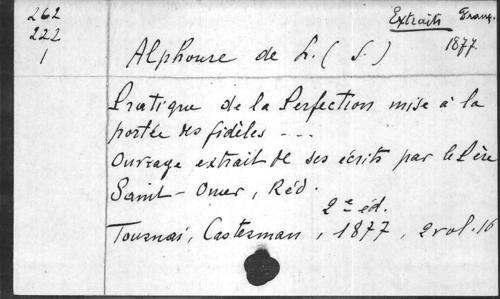 262
222
1
Extraits Franç.
1877
Alphonse de L. (S.)
Pratique de la Perfection mise à la
portée des fidèles ---
Ouvrage extrait de ses écrits par le Père
Saint-Omer, Réd.
2e éd.
Tournai, Casterman, 1877, 2 vol. 16